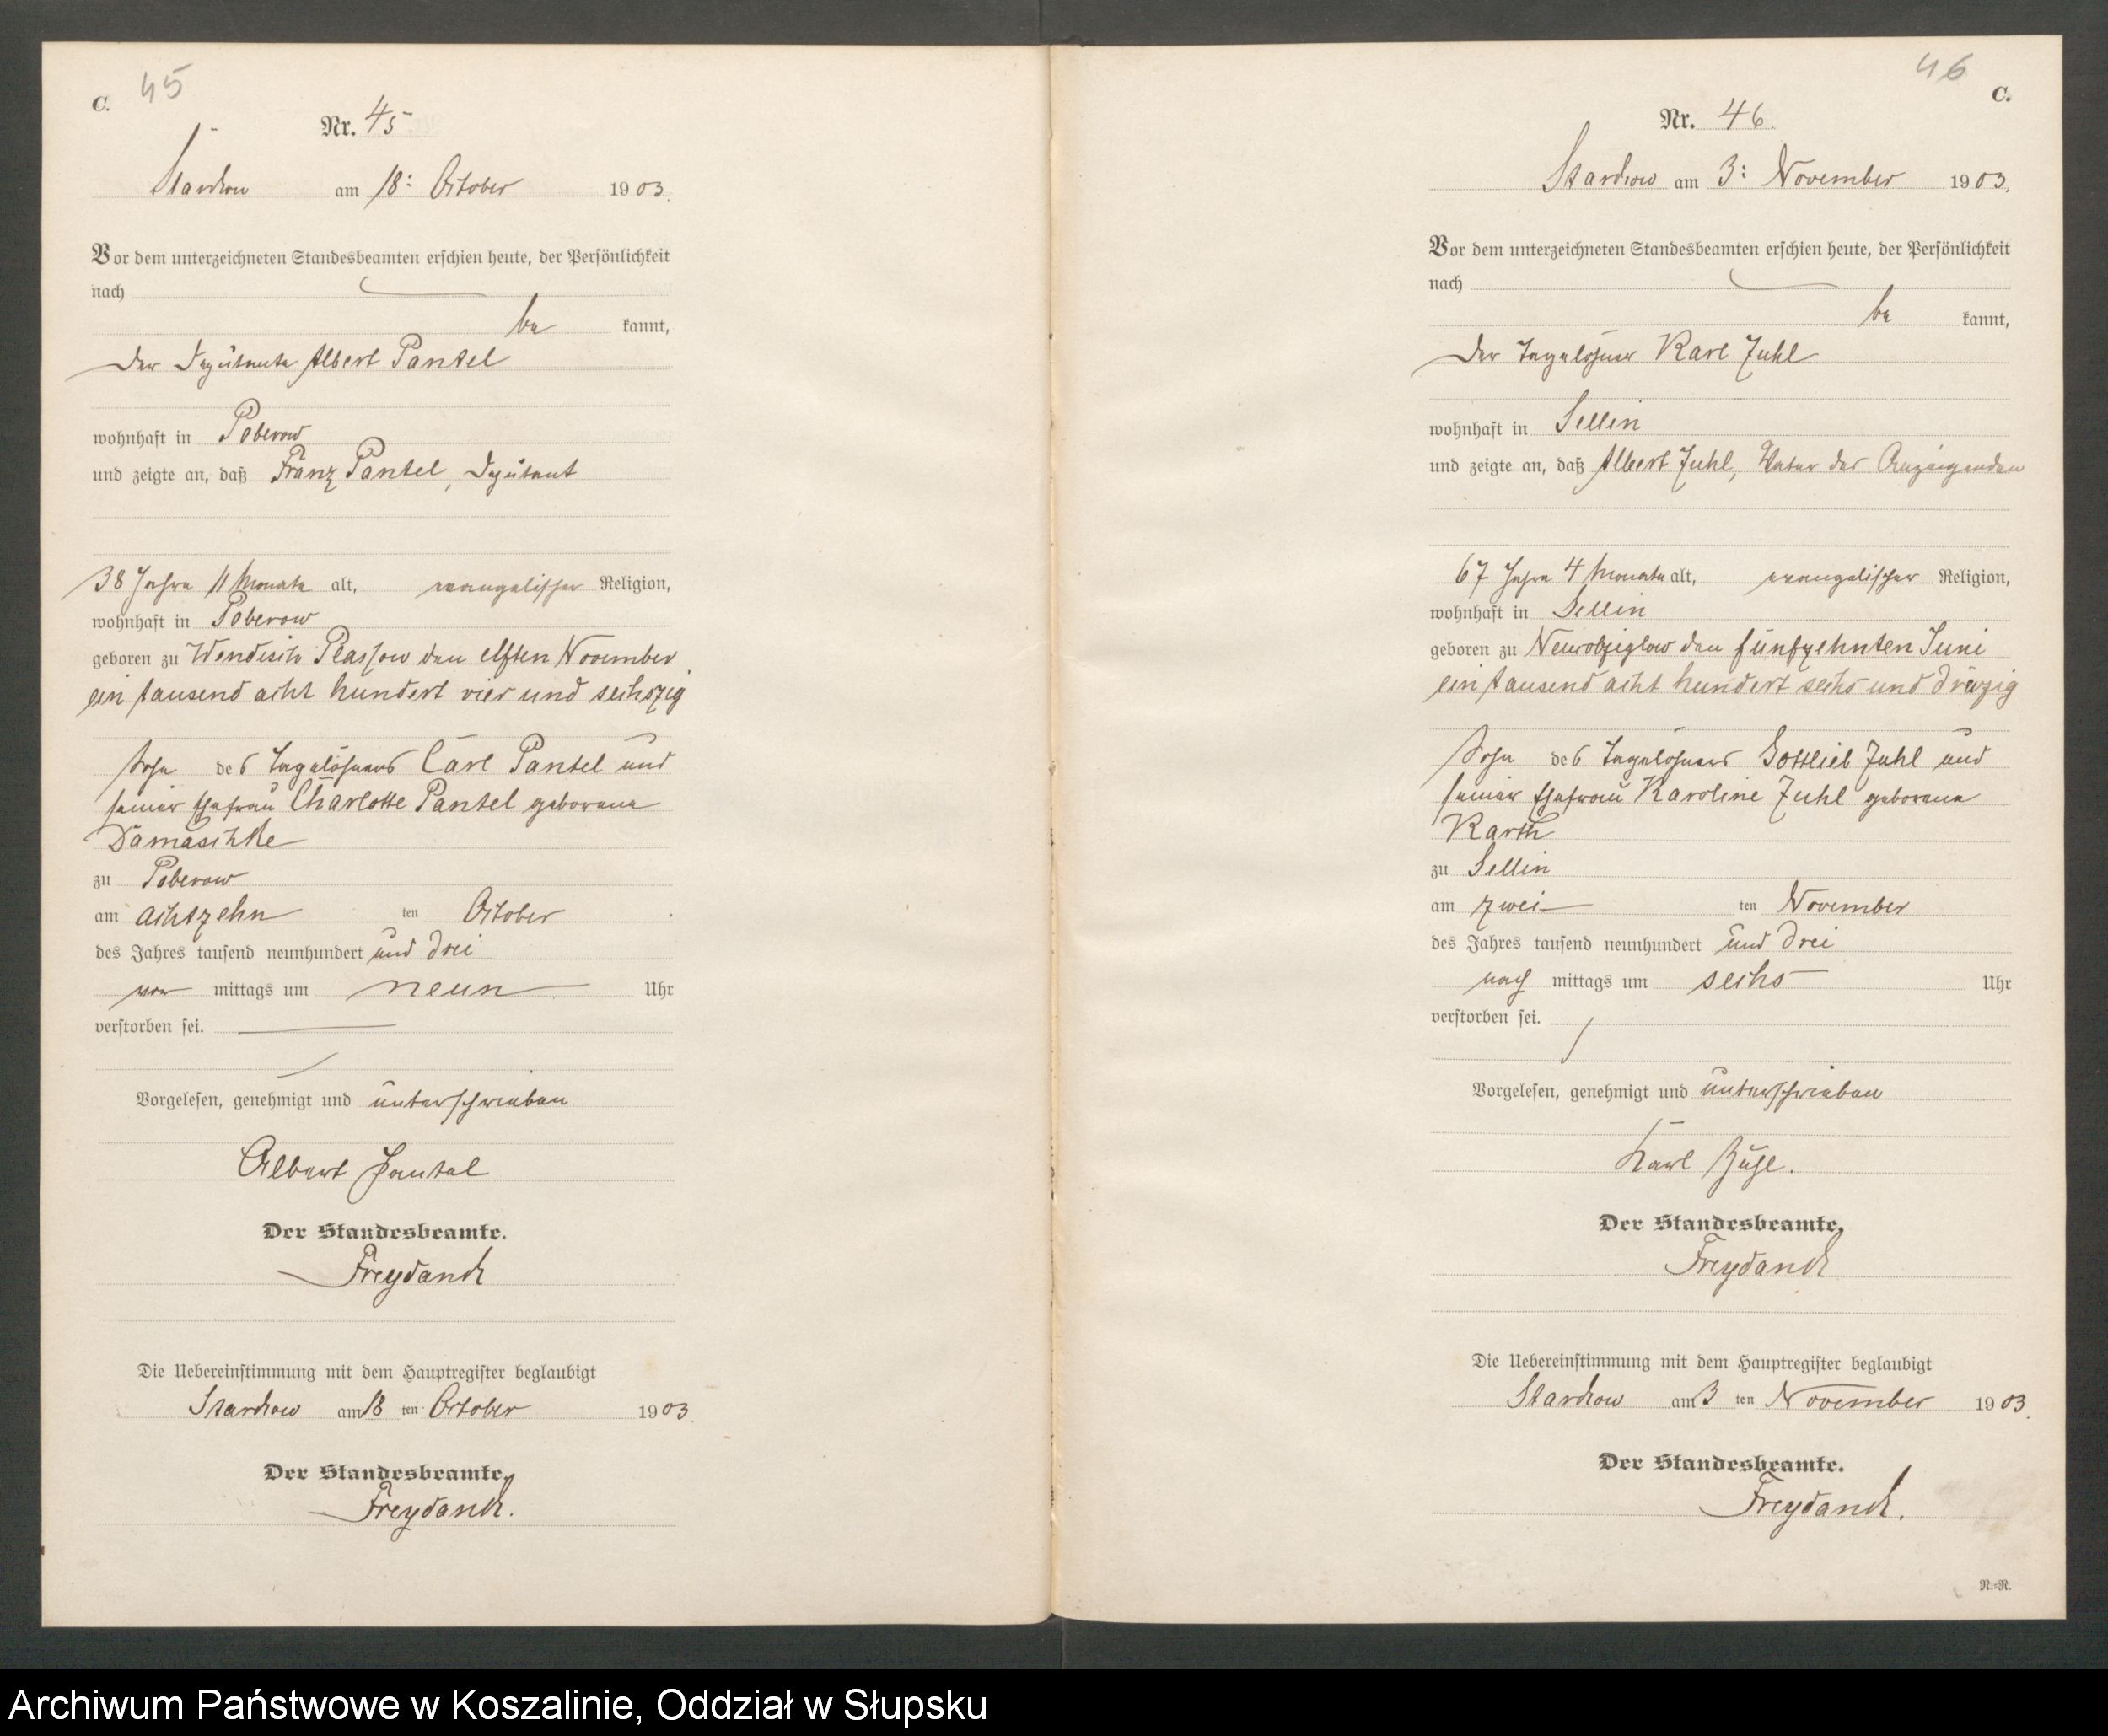 C. 45
Nr. 45
Starkow am 18: October 1903.
Vor dem unterzeichneten Standesbeamten erschien heute, der Persönlichkeit
nach
be kannt,
der Deputant Albert Pantel
wohnhaft in Poberow
und zeigte an, daß Franz Pantel, Deputant
38 Jahre 11 Monate alt, evangelischer Religion,
wohnhaft in Poberow
geboren zu Wendisch Plassow den elften November
ein tausend acht hundert vier und sechszig
Sohn des Tagelöhners Carl Pantel und
seiner Ehefrau Charlotte Pantel geborene
Damaschke
zu Poberow
am achtzehn ten October
des Jahres tausend neunhundert und drei
vor mittags um neun Uhr
verstorben sei.
Vorgelesen, genehmigt und unterschrieben
Albert Pantel
Der Standesbeamte.
Freydanck
Die Uebereinstimmung mit dem Hauptregister beglaubigt
Starkow am 18 ten October 1903.
Der Standesbeamte.
Freydanck.
46
C.
Nr. 46.
Starkow am 3: November 1903.
Vor dem unterzeichneten Standesbeamten erschien heute, der Persönlichkeit
nach
be kannt,
der Tagelöhner Karl Juhl
wohnhaft in Sellin
und zeigte an, daß Albert Juhl, Vater des Anzeigenden
67 Jahre 4 Monate alt, evangelischer Religion,
wohnhaft in Sellin
geboren zu Neukolziglow den fünfzehnten Juni
ein tausend acht hundert sechs und dreizig
Sohn des Tagelöhners Gottlieb Juhl und
seiner Ehefrau Karoline Juhl geborene
Karth
zu Sellin
am zwei ten November
des Jahres tausend neunhundert und drei
nach mittags um sechs Uhr
verstorben sei.
Vorgelesen, genehmigt und unterschrieben
Karl Juhl.
Der Standesbeamte.
Freydanck
Die Uebereinstimmung mit dem Hauptregister beglaubigt
Starkow am 3 ten November 1903.
Der Standesbeamte.
Freydanck.
N.=N.
Archiwum Państwowe w Koszalinie, Oddział w Słupsku